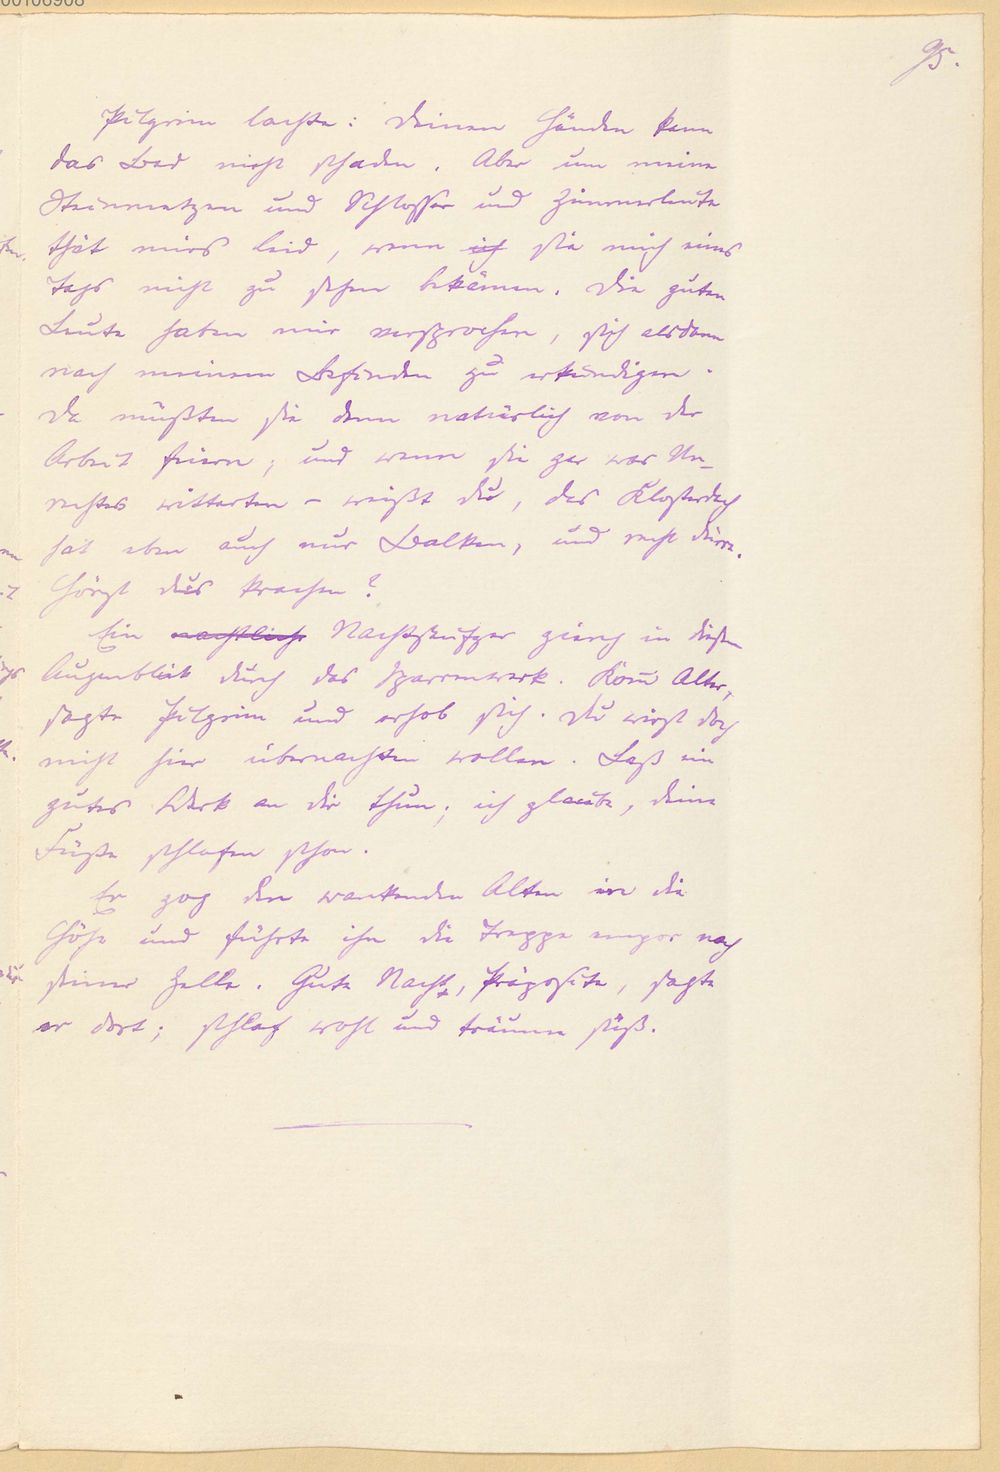 95.
Pilgrim lachte: Deinen Händen kann
das Bad nicht schaden. Aber um meine
Steinmetzen und Schlosser und Zimmerleute
thät mirs leid, wenn ich sie mich eines
Tags nicht zu sehen bekämen. Die guten
Leute haben mir versprochen, sich alsdann
nach meinem Befinden zu erkundigen.
Da müßten sie denn natürlich von der
Arbeit feiern; und wenn sie gar was Un-
rechtes witterten – weißt du, das Klosterdach
hat eben auch nur Balken, und recht dürre.
Hörst dus krachen?
Ein nächtlicher Nachtseufzer gieng in diesem
Augenblick durch das Sparrenwerk. Kom̄ Alter,
sagte Pilgrim und erhob sich. Du wirst doch
nicht hier übernachten wollen. Laß ein
gutes Werk an dir thun; ich glaube, deine
Füße schlafen schon.
Er zog den wankenden Alten in die
Höhe und führte ihn die Treppe empor nach
seiner Zelle. Gute Nacht, Präposite, sagte
er dort; schlaf wohl und träume süß.